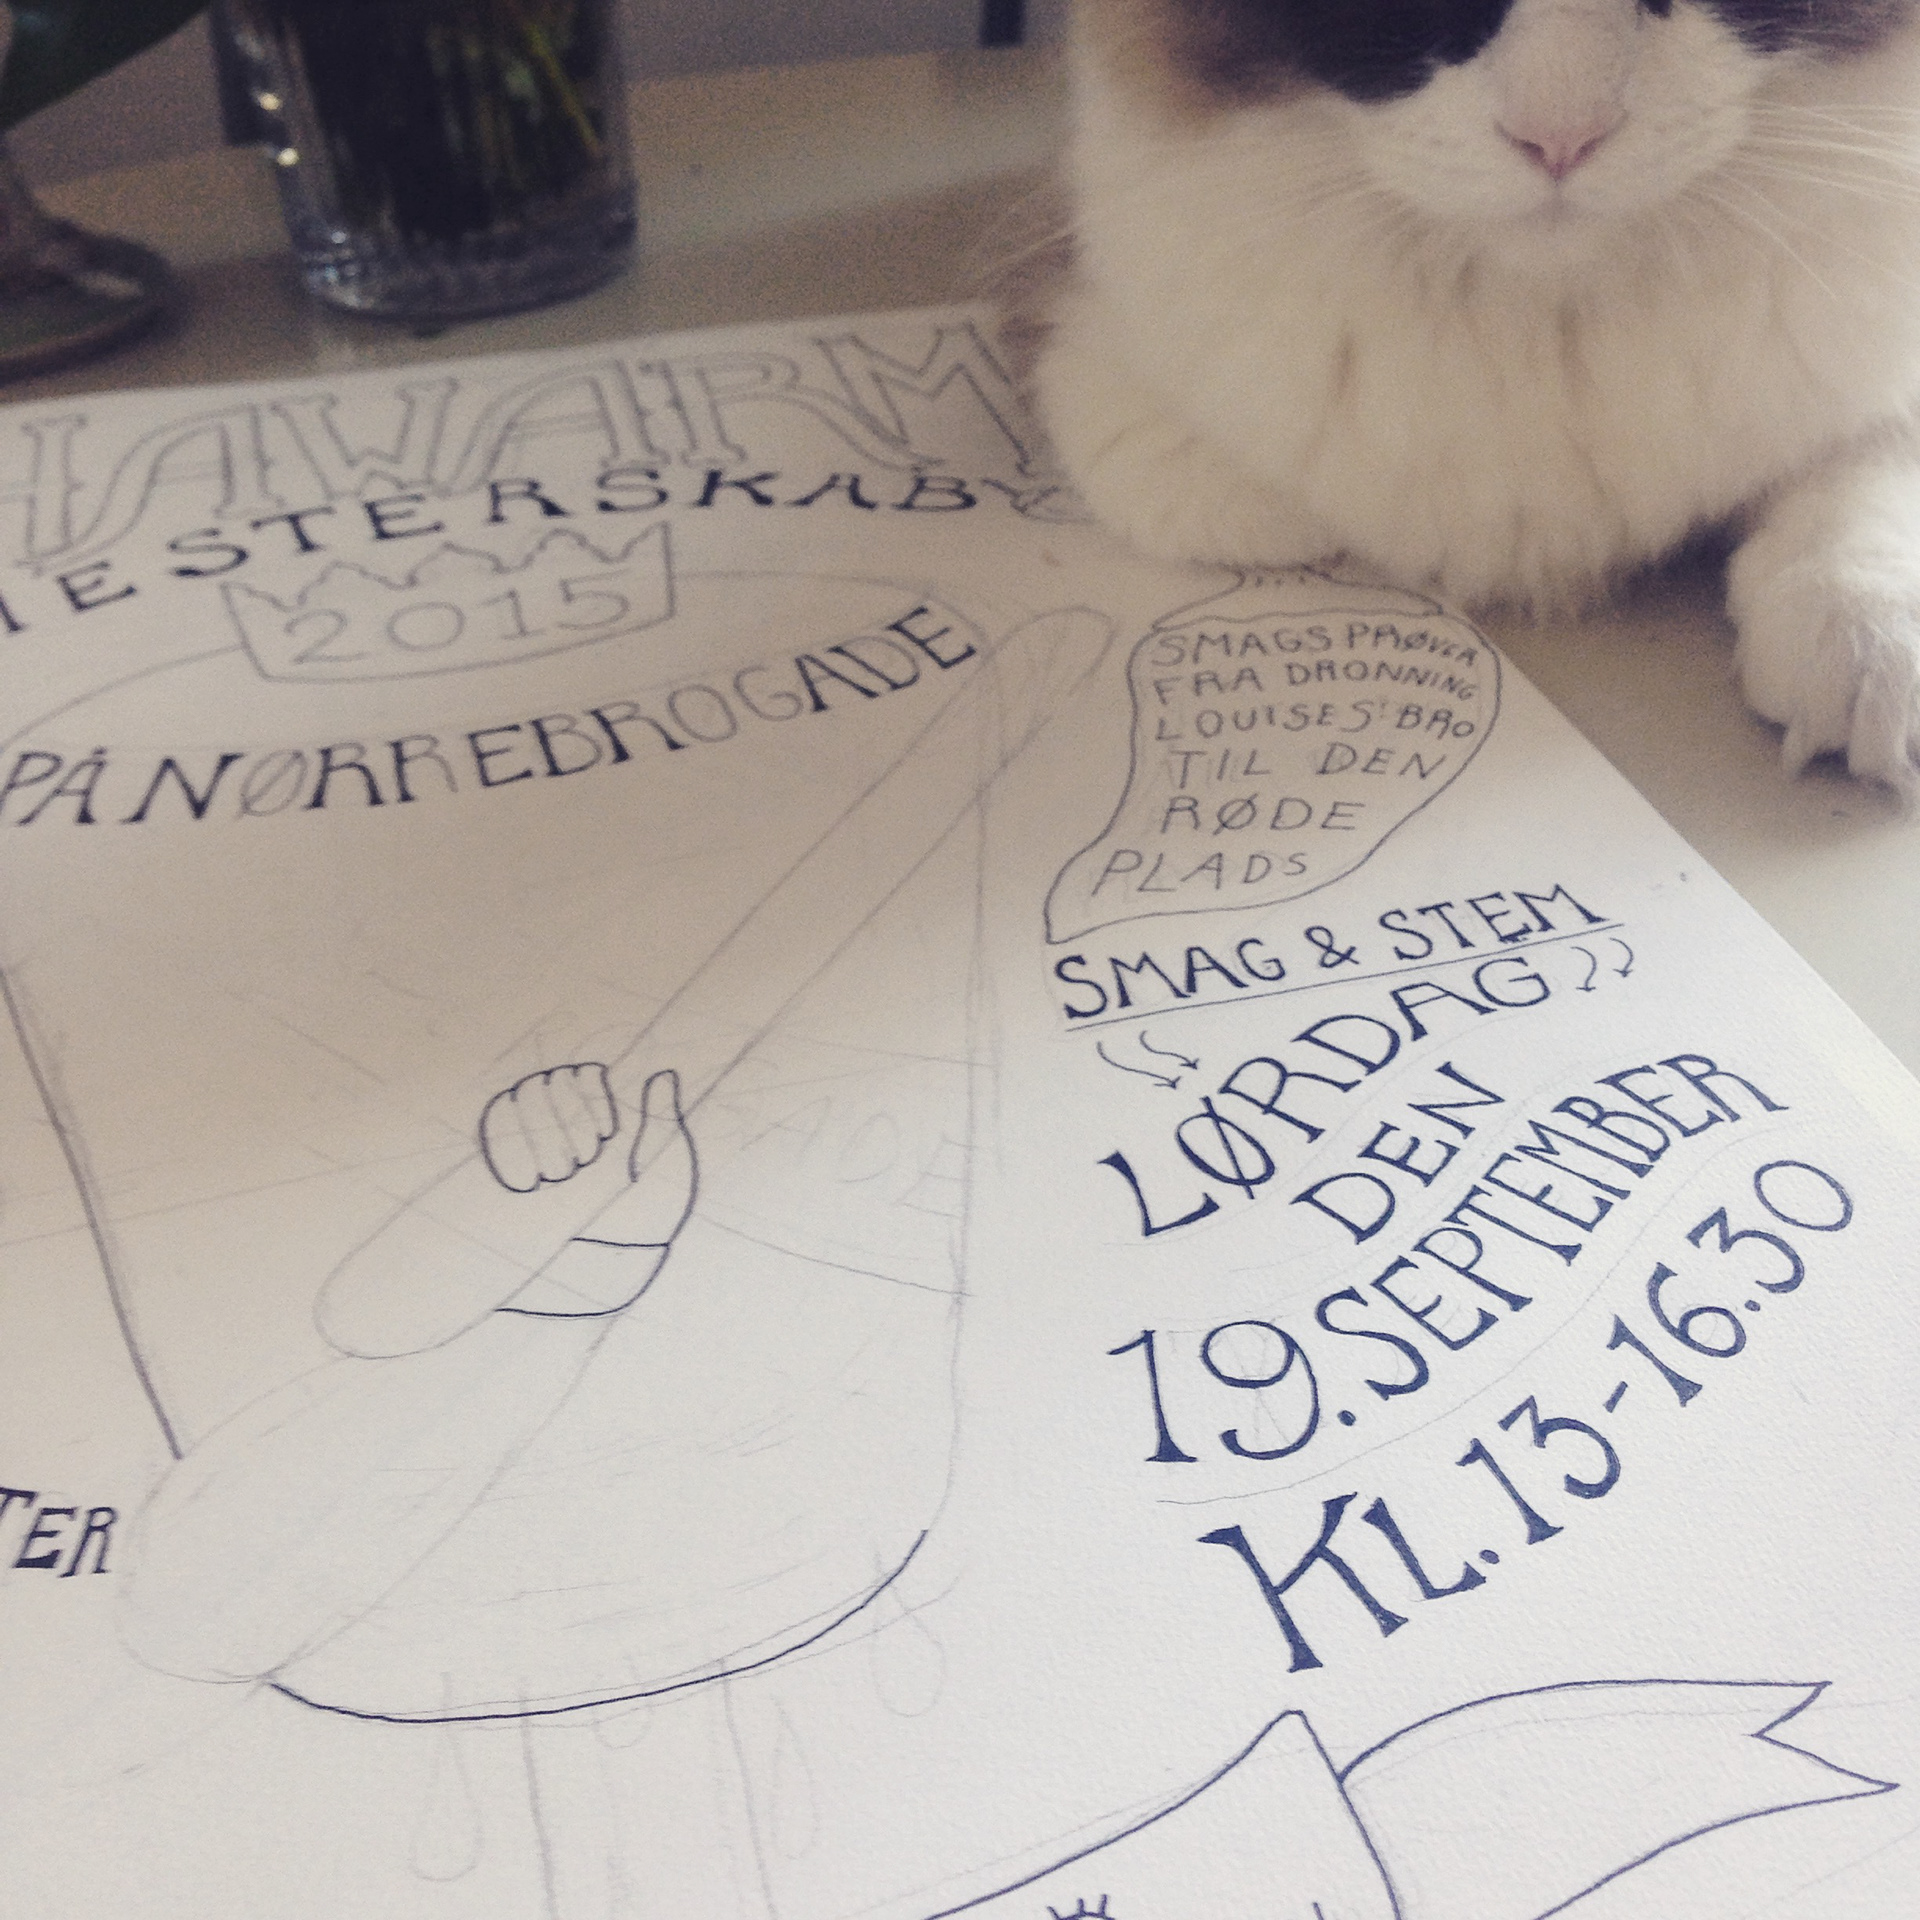 HAWARM
MESTERSKAB
2015
PÅ NØRREBROGADE
SMAGSPRØVER
FRA DRONNING
LOUISES' BRO
TIL DEN
RØDE
PLADS
SMAG & STEM
LØRDAG
DEN
19. SEPTEMBER
KL. 13-16.30
TER